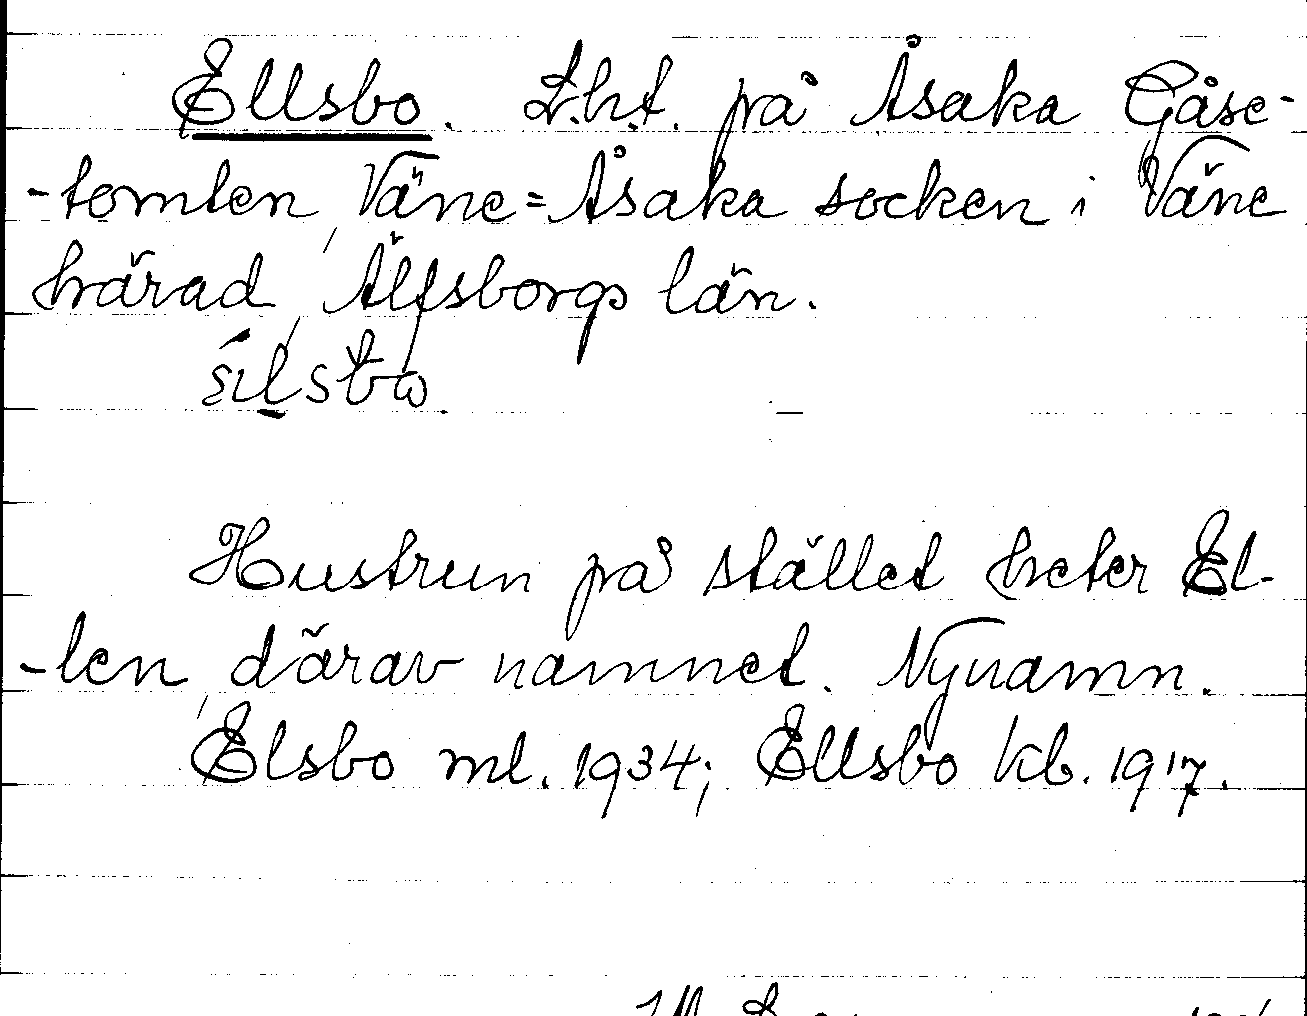 Ellsbo. L.h.t. på Åsaka Gåse-
-tomten, Väne=Åsaka socken i Väne
härad, Älfsborgs län.
Hustrun på stället heter El-
-len, därav namnet. Nynamn.
Elsbo ml. 1934; Ellsbo kb. 1917.